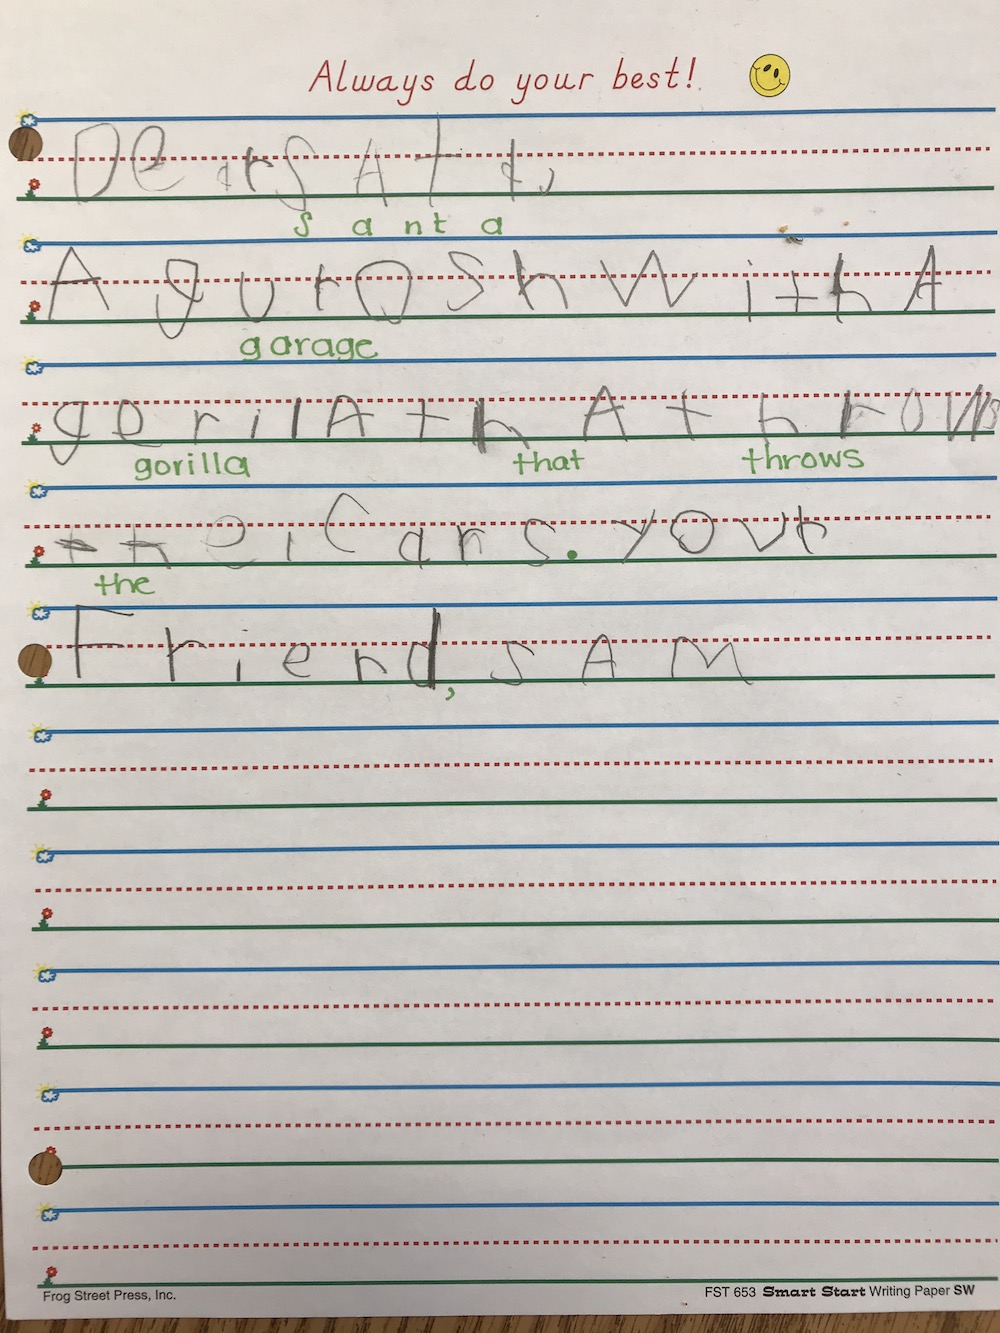 Always do your best!
DearSAta,
santa
A gurOSh With A
garage
gerilA thAt hrows
gorilla that throws
the Cars. your
the
Friend, SAM
Frog Street Press, Inc. FST 653 Smart Start Writing Paper SW